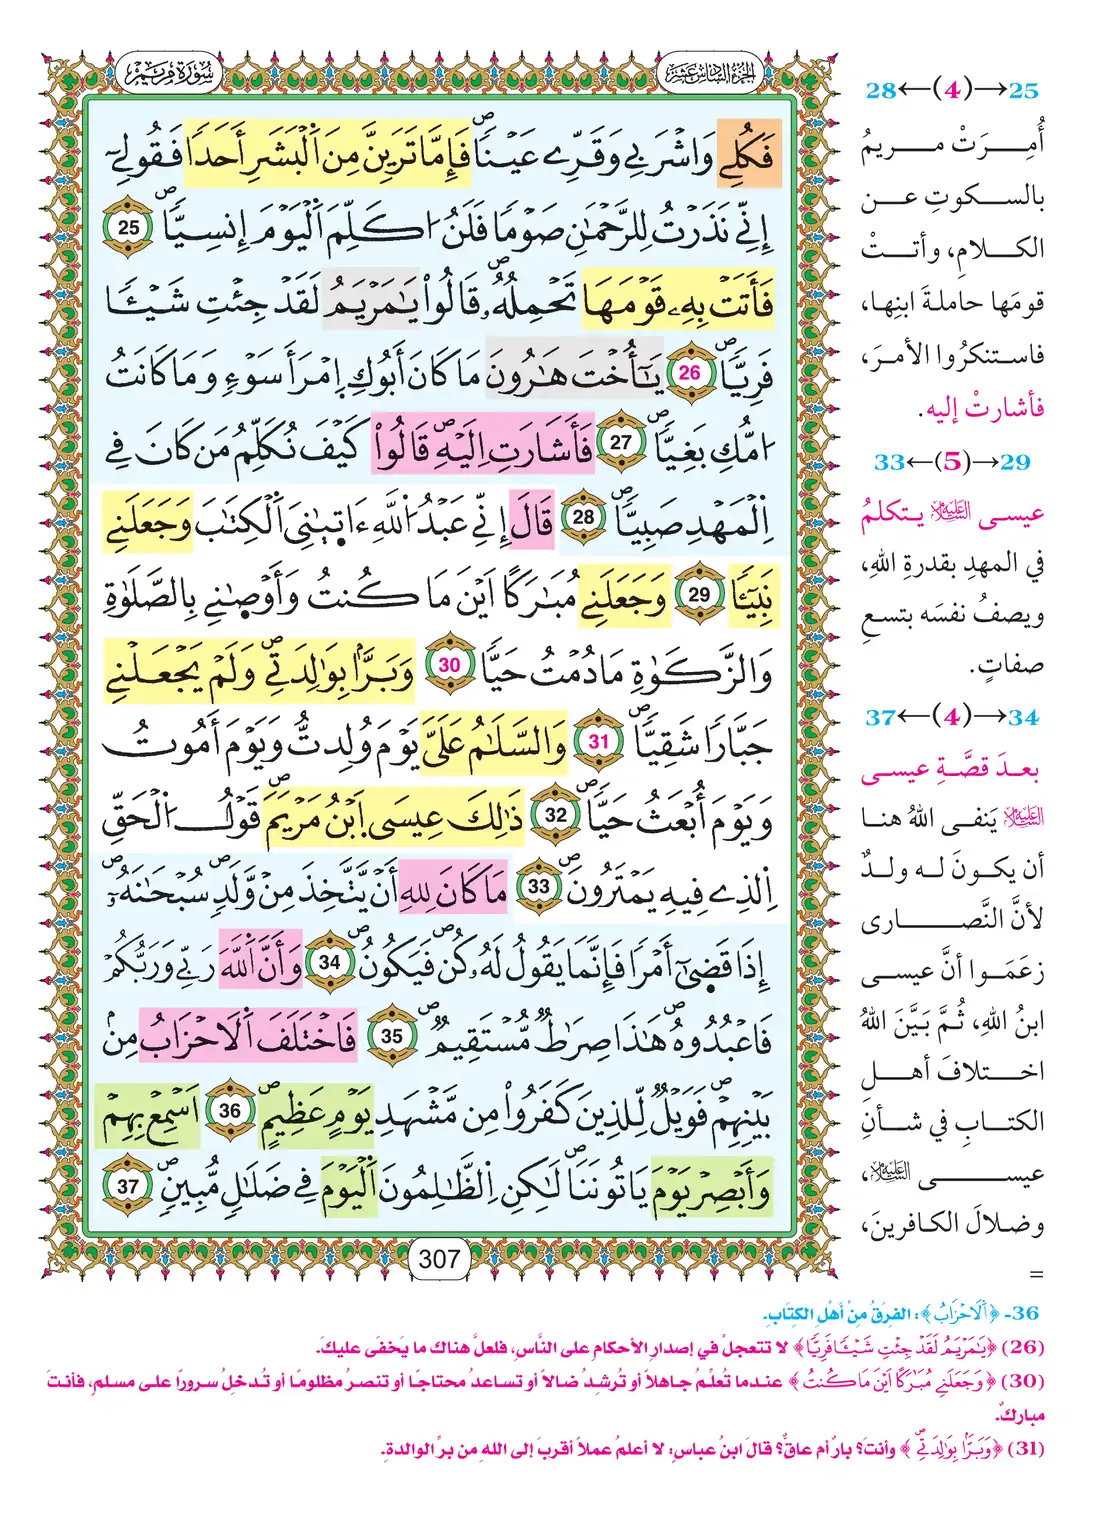 سُورَةُ مَرْيَمَ
الجُزْءُ السَّادِسَ عَشَرَ
فَكُلِے وَاشْرَبِے وَقَرِّے عَيْنٗاۖ فَإِمَّا تَرَيِنَّ مِنَ اَ۬لْبَشَرِ أَحَداٗ فَقُولِےٓ
إِنِّے نَذَرْتُ لِلرَّحْمَٰنِ صَوْماٗ فَلَنُ ا۟كَلِّمَ اَ۬لْيَوْمَ إِنسِيّاٗۖ 25
فَأَتَتْ بِهِۦ قَوْمَهَا تَحْمِلُهُۥۖ قَالُواْ يَٰمَرْيَمُ لَقَدْ جِئْتِ شَيْـٔاٗ
فَرِيّاٗۖ 26 يَٰٓأُخْتَ هَٰرُونَ مَا كَانَ أَبُوكِ اِ۪مْرَأَ سَوْءٖ وَمَا كَانَتُ
ا۟مُّكِ بَغِيّاٗۖ 27 فَأَشَارَتِ اِلَيْهِۖ قَالُواْ كَيْفَ نُكَلِّمُ مَن كَانَ فِے
اِ۬لْمَهْدِ صَبِيّاٗۖ 28 قَالَ إِنِّے عَبْدُ اُ۬للَّهِ ءَاتَيٰنِيَ اَ۬لْكِتَٰبَ وَجَعَلَنِے
نَبِيٓـٔاٗ 29 وَجَعَلَنِے مُبَٰرَكاً اَيْنَ مَا كُنتُ وَأَوْصَٰنِے بِالصَّلَوٰةِ
وَالزَّكَوٰةِ مَا دُمْتُ حَيّاٗ 30 وَبَرّاَۢ بِوَٰلِدَتِےۖ وَلَمْ يَجْعَلْنِے
جَبَّاراٗ شَقِيّاٗۖ 31 وَالسَّلَٰمُ عَلَيَّ يَوْمَ وُلِدتُّ وَيَوْمَ أَمُوتُ
وَيَوْمَ أُبْعَثُ حَيّاٗۖ 32 ذَٰلِكَ عِيسَى اَ۪بْنُ مَرْيَمَۖ قَوْلُ اُ۬لْحَقِّ
اِ۬لذِے فِيهِ يَمْتَرُونَۖ 33 مَا كَانَ لِلهِ أَنْ يَّتَّخِذَ مِنْ وَّلَدٖۖ سُبْحَٰنَهُۥٓۖ
إِذَا قَضَىٰٓ أَمْراٗ فَإِنَّمَا يَقُولُ لَهُۥ كُن فَيَكُونُۖ 34 وَأَنَّ اَ۬للَّهَ رَبِّے وَرَبُّكُمْ
فَاعْبُدُوهُۖ هَٰذَا صِرَٰطٞ مُّسْتَقِيمٞۖ 35 فَاخْتَلَفَ اَ۬لَاحْزَابُ مِنۢ
بَيْنِهِمْۖ فَوَيْلٞ لِّلذِينَ كَفَرُواْ مِن مَّشْهَدِ يَوْمٍ عَظِيمٍۖ 36 اَسْمِعْ بِهِمْ
وَأَبْصِرْ يَوْمَ يَاتُونَنَاۖ لَٰكِنِ اِ۬لظَّٰلِمُونَ اَ۬لْيَوْمَ فِے ضَلَٰلٖ مُّبِينٖۖ 37
307
25→(4)←28
أُمِـــرَتْ مـــريمُ
بالسكوتِ عـن
الكلامِ، وأتـتْ
قومَها حاملةَ ابنِها،
فاستنكرُوا الأمرَ،
فأشارتْ إليه.
29→(5)←33
عيسى عليه السلام يتكلمُ
في المهدِ بقدرةِ اللهِ،
ويصفُ نفسَه بتسعِ
صفاتٍ.
34→(4)←37
بعدَ قصَّةِ عيسى
عليه السلام يَنفى اللهُ هنا
أن يكونَ له ولدٌ
لأنَّ النَّصارى
زعَمَوا أنَّ عيسى
ابنُ اللهِ، ثُمَّ بَيَّنَ اللهُ
اختلافَ أهـلِ
الكتابِ في شأنِ
عيسى عليه السلام،
وضلالَ الكافرينَ،
=
36- ﴿اَ۬لَاحْزَابُ﴾: الفرَقُ مِنْ أَهْلِ الكِتَابِ.
(26) ﴿يَٰمَرْيَمُ لَقَدْ جِئْتِ شَيْـٔاٗ فَرِيّاٗ﴾ لا تتعجلْ في إصدارِ الأحكامِ على النَّاسِ، فلعلَّ هناكَ ما يَخفَى عليكَ.
(30) ﴿وَجَعَلَنِے مُبَٰرَكاً اَيْنَ مَا كُنتُ﴾ عندما تُعلِّمُ جاهلاً أو تُرشدُ ضالاً أو تساعدُ محتاجًا أو تنصر مظلومًا أو تُدخلُ سروراً على مسلمٍ، فأنتَ
مباركٌ.
(31) ﴿وَبَرّاَۢ بِوَٰلِدَتِےۖ﴾ وأنتَ؟ بارٌ أم عاقٌّ؟ قالَ ابنُ عباسٍ: لا أعلمُ عملاً أقربَ إلى اللهِ من برِّ الوالدةِ.